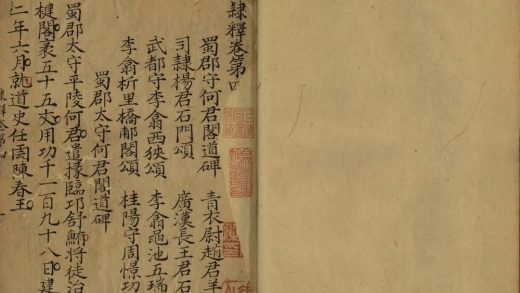 隸釋卷第四
蜀郡守何君閣道碑 青衣尉趙君羊
司隸楊君石門頌 廣漢長王君石
武都守李翕西狹頌 李翕黽池五瑞
李翕析里橋郙閣頌 桂陽守周憬功
蜀郡太守何君閣道碑
蜀郡太守平陵何君遣掾臨邛舒鮪將徒治
楗閣袤五十五丈用功千一百九十八日建
二年六月就道史任陳春王
隸釋卷第四 一